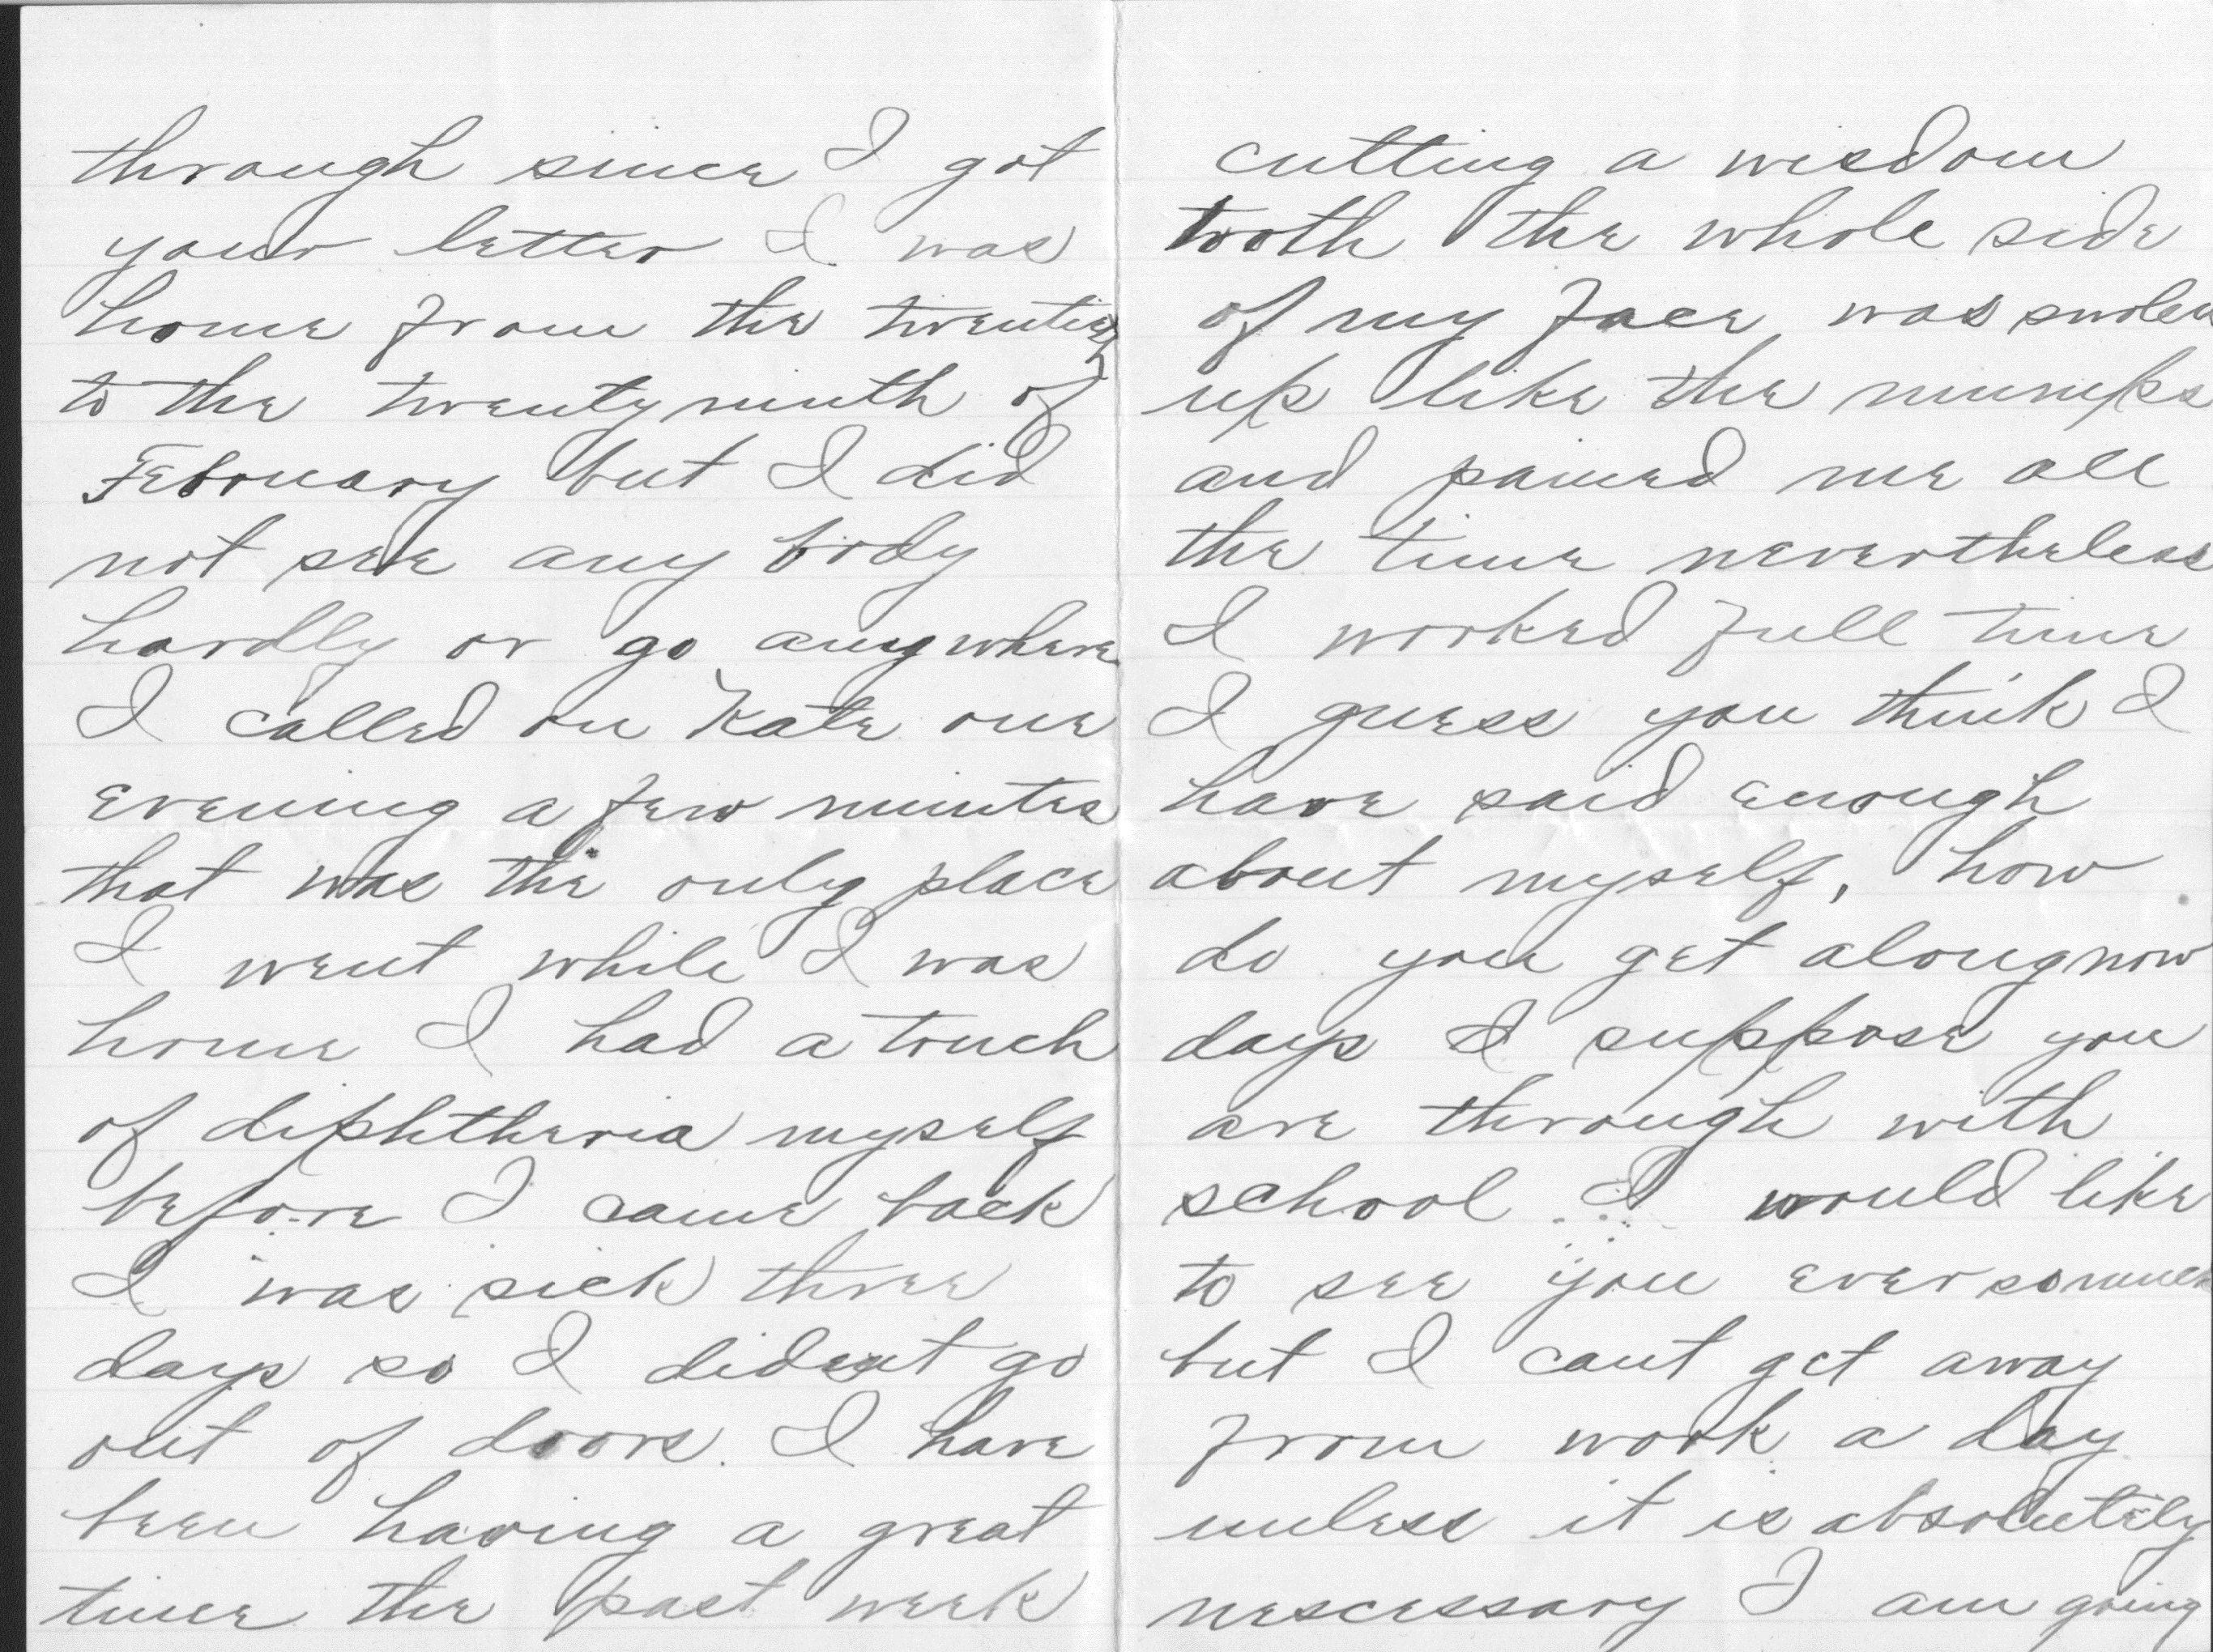 through since I got
your letter I was
home from the twentieth
to the twenty ninth of
February but I did
not see any body
hardly or go anywhere
I called on Kate one
evening a few minutes
that was the only place
I went while I was
home I had a touch
of diphtheria myself
before I came back
I was sick three
days so I dident go
out of doors. I have
been having a great
time the past week
cutting a wisdom
tooth the whole side
of my face was swolen
up like the mumps
and pained me all
the time nevertheless
I worked full time
I guess you think I
have said enough
about myself, how
do you get along now
days I suppose you
are through with
school I would like
to see you ever so much
but I cant get away
from work a day
unless it is absolutely
nescessary I am going